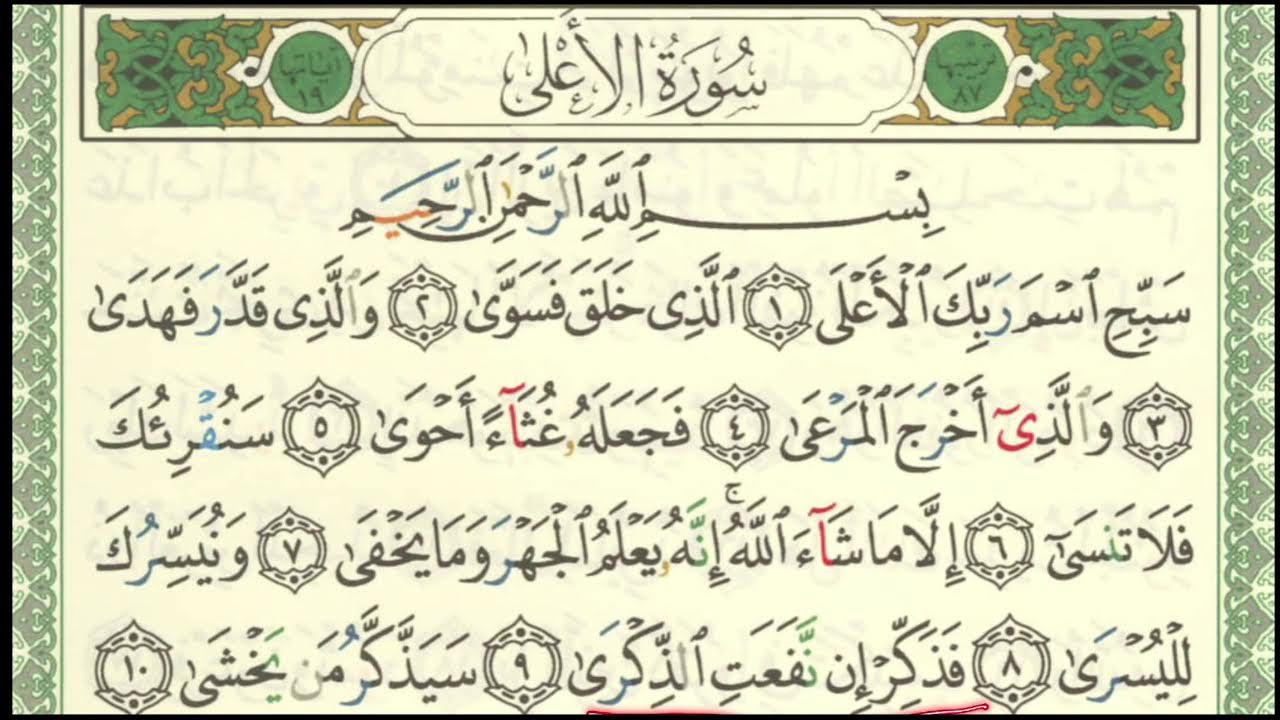 ترتيبها ٨٧ سُورَةُ الأَعْلَى آياتها ١٩
بِسْمِ ٱللَّهِ ٱلرَّحْمَٰنِ ٱلرَّحِيمِ
سَبِّحِ ٱسْمَ رَبِّكَ ٱلْأَعْلَى ١ ٱلَّذِى خَلَقَ فَسَوَّىٰ ٢ وَٱلَّذِى قَدَّرَ فَهَدَىٰ
٣ وَٱلَّذِىٓ أَخْرَجَ ٱلْمَرْعَىٰ ٤ فَجَعَلَهُۥ غُثَآءً أَحْوَىٰ ٥ سَنُقْرِئُكَ
فَلَا تَنسَىٰٓ ٦ إِلَّا مَا شَآءَ ٱللَّهُ ۚ إِنَّهُۥ يَعْلَمُ ٱلْجَهْرَ وَمَا يَخْفَىٰ ٧ وَنُيَسِّرُكَ
لِلْيُسْرَىٰ ٨ فَذَكِّرْ إِن نَّفَعَتِ ٱلذِّكْرَىٰ ٩ سَيَذَّكَّرُ مَن يَخْشَىٰ ١٠